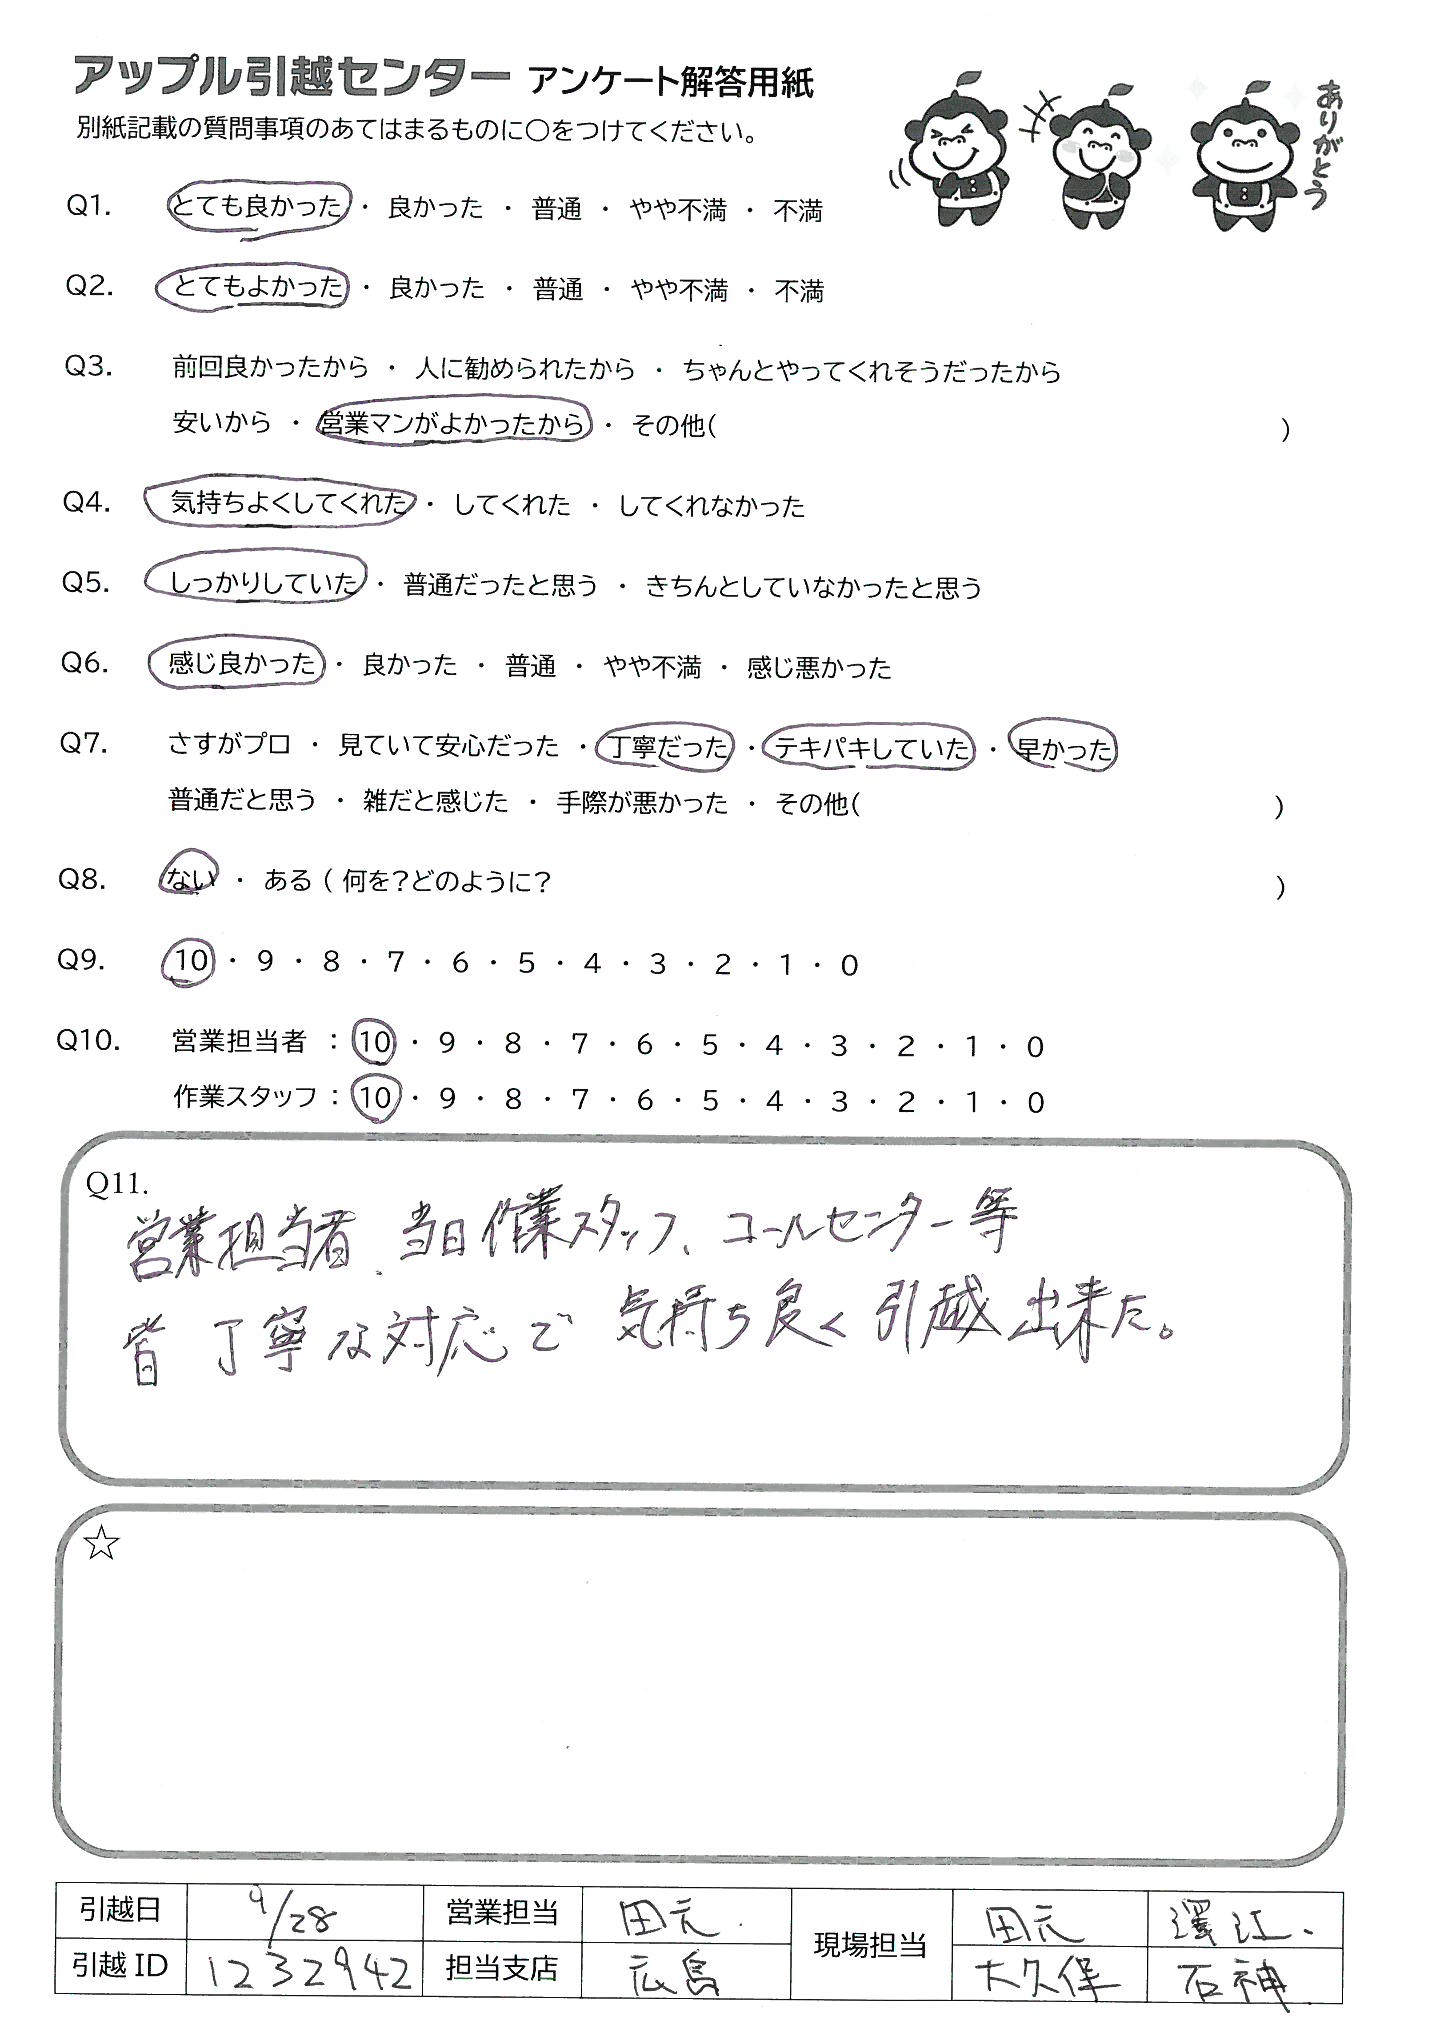 アップル引越センター アンケート解答用紙
別紙記載の質問事項のあてはまるものに○をつけてください。
ありがとう
Q1. とても良かった ・ 良かった ・ 普通 ・ やや不満 ・ 不満
Q2. とてもよかった ・ 良かった ・ 普通 ・ やや不満 ・ 不満
Q3. 前回良かったから ・ 人に勧められたから ・ ちゃんとやってくれそうだったから
安いから ・ 営業マンがよかったから ・ その他( )
Q4. 気持ちよくしてくれた ・ してくれた ・ してくれなかった
Q5. しっかりしていた ・ 普通だったと思う ・ きちんとしていなかったと思う
Q6. 感じ良かった ・ 良かった ・ 普通 ・ やや不満 ・ 感じ悪かった
Q7. さすがプロ ・ 見ていて安心だった ・ 丁寧だった ・ テキパキしていた ・ 早かった
普通だと思う ・ 雑だと感じた ・ 手際が悪かった ・ その他( )
Q8. ない ・ ある ( 何を?どのように? )
Q9. 10 ・ 9 ・ 8 ・ 7 ・ 6 ・ 5 ・ 4 ・ 3 ・ 2 ・ 1 ・ 0
Q10. 営業担当者 : 10 ・ 9 ・ 8 ・ 7 ・ 6 ・ 5 ・ 4 ・ 3 ・ 2 ・ 1 ・ 0
作業スタッフ : 10 ・ 9 ・ 8 ・ 7 ・ 6 ・ 5 ・ 4 ・ 3 ・ 2 ・ 1 ・ 0
Q11.
営業担当者、当日作業スタッフ、コールセンター等
皆 丁寧な対応で 気持ち良く引越出来た。
☆
引越日 9/28 営業担当 田元 現場担当 田元 澤江
引越ID 1232942 担当支店 広島 大久保 石神